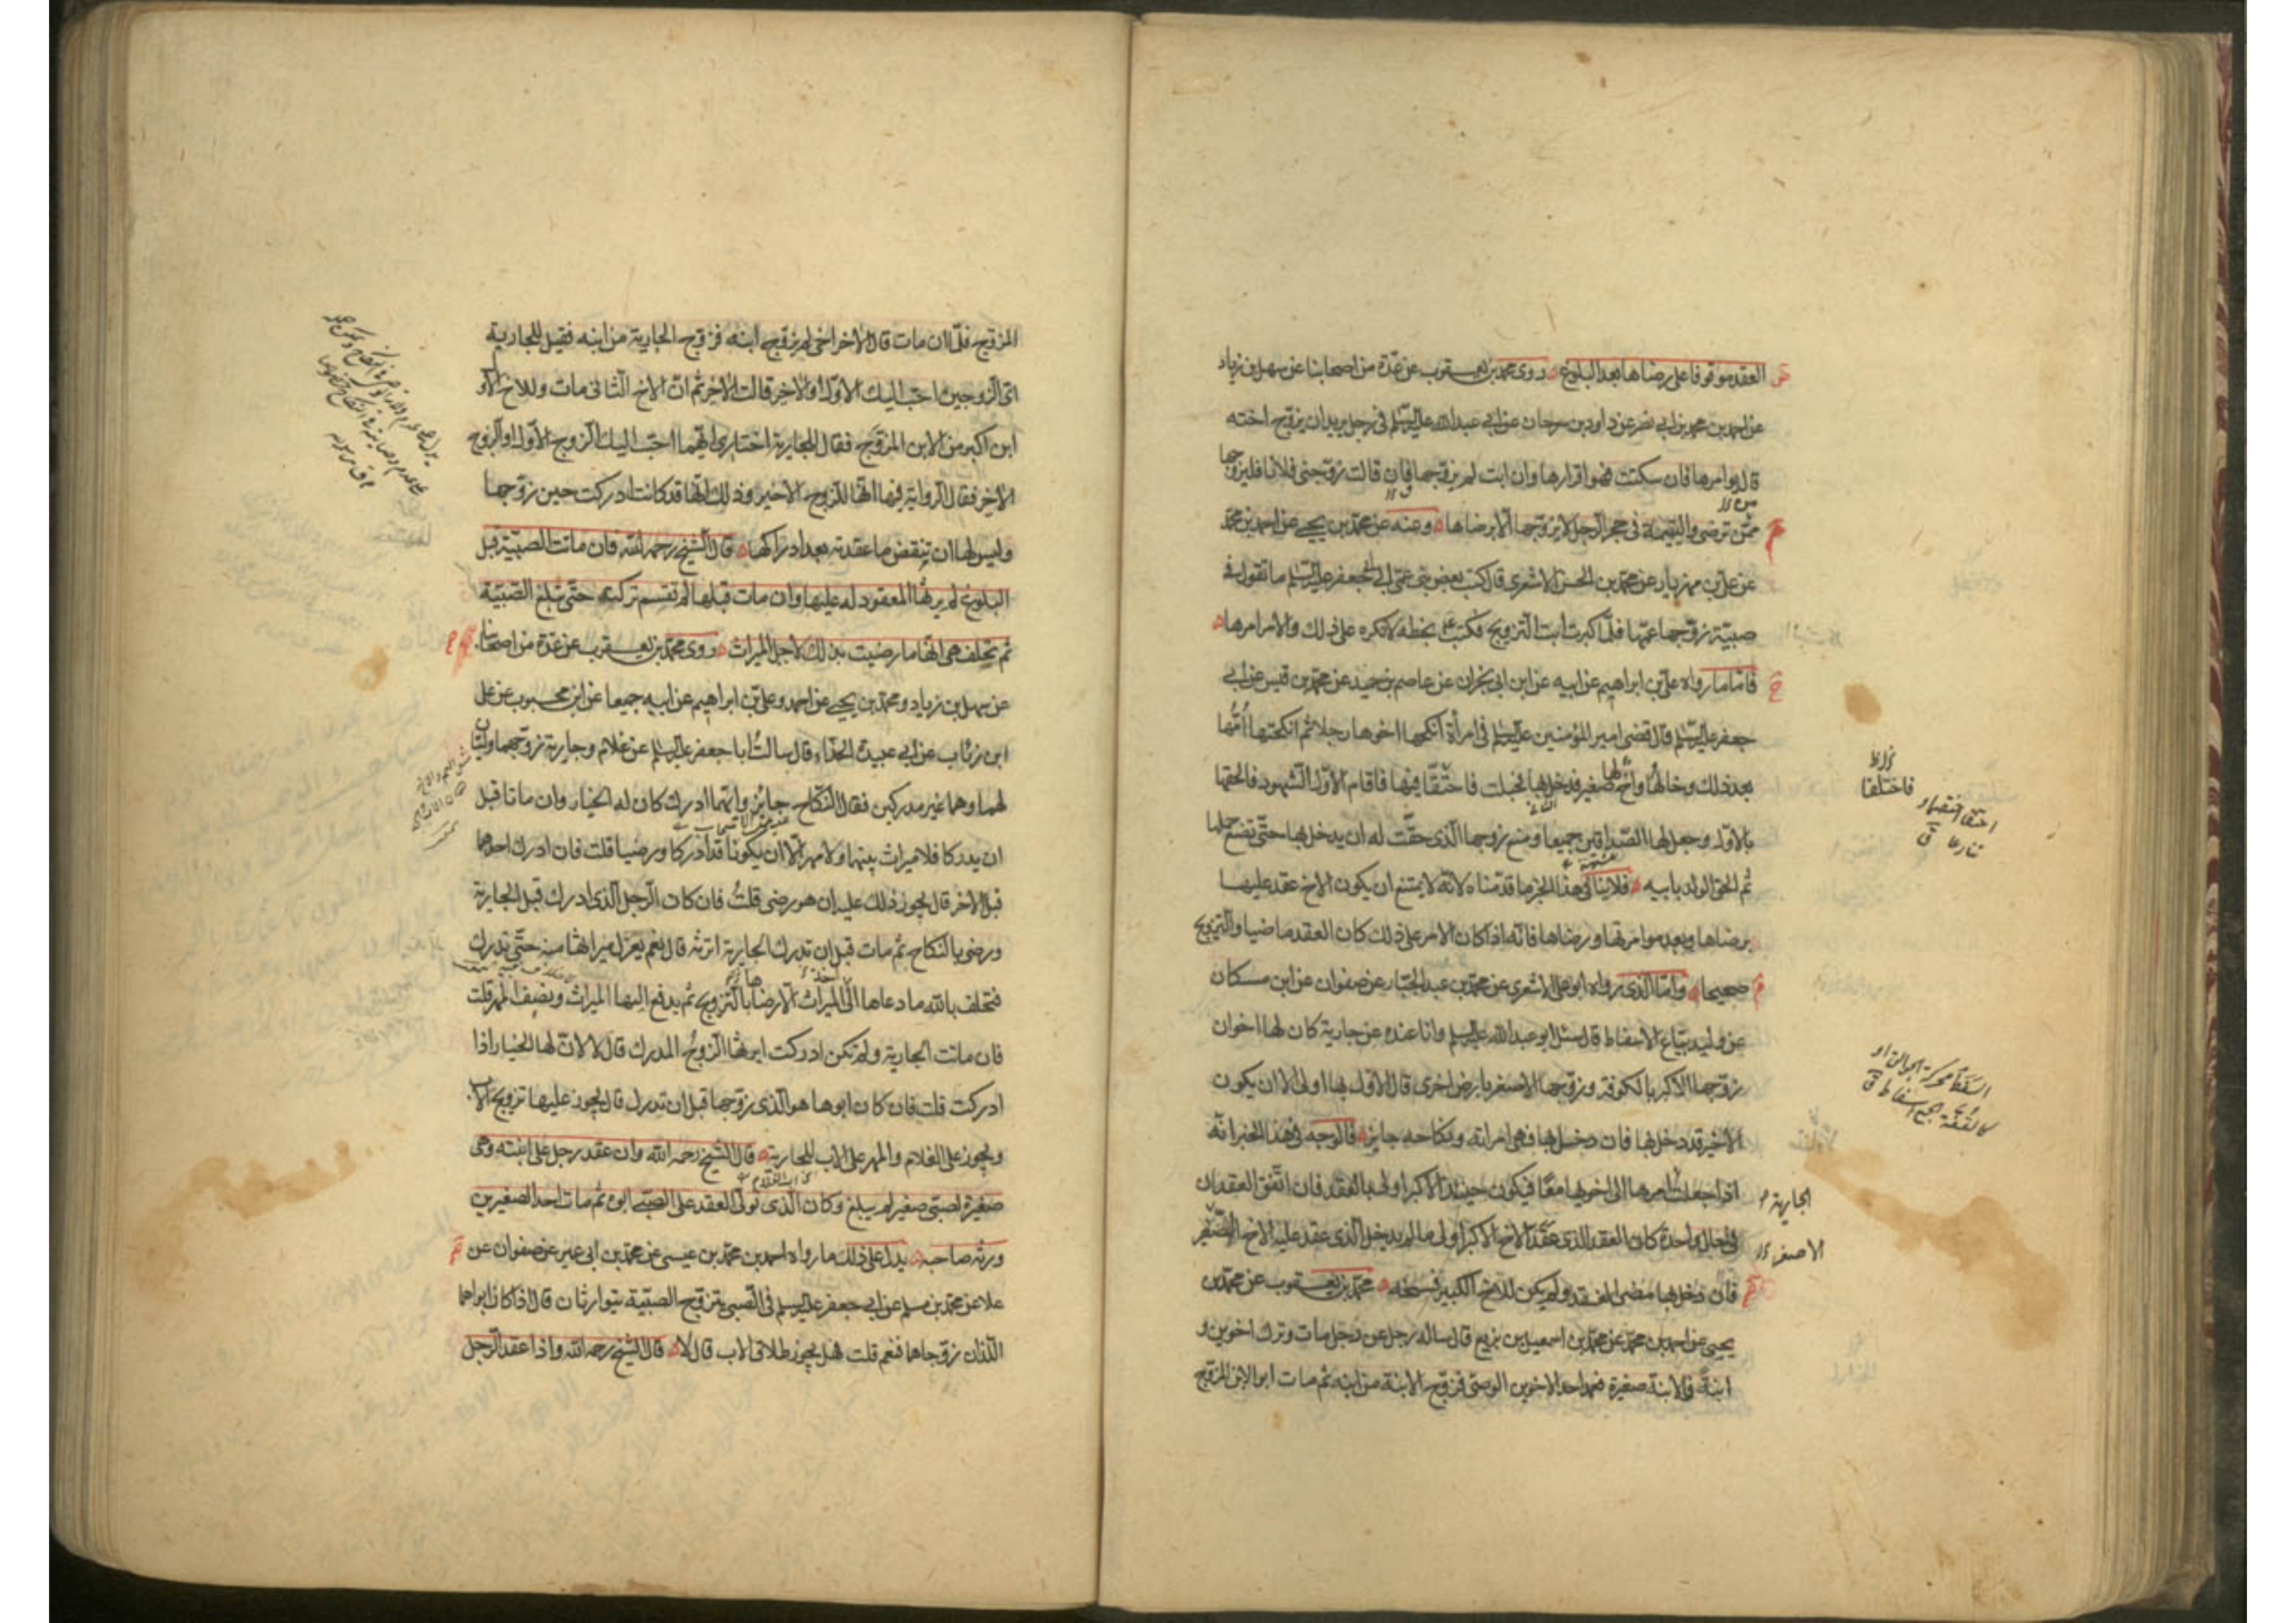 العقد موقوفا على رضاها بعد البلوغ روى محمد بن يعقوب عن عدة من اصحابنا عن سهل بن زياد
عن احمد بن محمد بن ابي نصر عن داود بن سرحان عن ابي عبد الله عليه السلم في رجل يريد ان يزوج اخته
قال يوامرها فان سكتت فهو اقرارها وان ابت لم يزوجها فان قالت زوجني فلانا فليزوجها
ممن ترضى واليتيمة في حجر الرجل لا يزوجها الا برضاها وعنه عن محمد بن يحيى عن احمد بن محمد
عن علي بن مهزيار عن محمد بن الحسن الاشعري قال كتب بعض بني عمي الى ابي جعفر عليه السلم ما تقول في
صبية زوجها عمها فلما كبرت ابت التزويج فكتب بخطه لا تكره على ذلك والامر امرها
فاما ما رواه علي بن ابراهيم عن ابيه عن ابن ابي نجران عن عاصم بن حميد عن محمد بن قيس عن ابي
جعفر عليه السلم قال قضى امير المؤمنين عليه السلم في امرأة انكحها اخوها رجلا ثم انكحتها امها
بعد ذلك وخالها واخ لها صغير فدخل بها فحبلت فاحتقا فيها فاقام الاول الشهود فالحقها
بالاول وجعل لها الصداقين جميعا ومنع زوجها الذي حقت له ان يدخل بها حتى تضع حملها
ثم الحق الولد بابيه فلا ينافي هذا الخبر ما قدمناه لانه لا يمتنع ان يكون الاخ عقد عليها
برضاها وبعد موامرتها ورضاها فانه اذا كان الامر على ذلك كان العقد ماضيا والتزويج
صحيحا واما الذي رواه ابو علي الاشعري عن محمد بن عبد الجبار عن صفوان عن ابن مسكان
عن وليد بياع الاسفاط قال سئل ابو عبد الله عليه السلم وانا عنده عن جارية كان لها اخوان
زوجها الاكبر بالكوفة وزوجها الاصغر بارض اخرى قال الاول بها اولى الا ان يكون
الاخير قد دخل بها فان دخل بها فهي امراته ونكاحه جايز فالوجه في هذا الخبر انه
اذا جعلت امرها الى اخويها معا فيكون حينئذ الاكبر اولى بالعقد فان اتفق العقدان
في حال واحدة كان العقد الذي عقد الاخ الاكبر اولى ما لم يدخل الذي عقد عليه الاخ الصغير
فان دخل بها مضى العقد ولم يكن للاخ الكبير فسخه محمد بن يعقوب عن محمد بن
يحيى عن احمد بن محمد عن محمد بن اسمعيل بن بزيع قال ساله رجل عن رجل مات وترك اخوين و
ابنة والابنة صغيرة فعمد احد الاخوين الوصي فزوج الابنة من ابنه ثم مات ابو الابن المزوج
فاختلفا
الجارية
الاصغر
المزوج فلما ان مات قال الاخر اخي لم يزوج ابنه فزوج الجارية من ابنه فقيل للجارية
اي الزوجين احب اليك الاول او الاخر قالت الاخر ثم ان الاخ الثاني مات وللاخ الاول
ابن اكبر من الابن المزوج فقال للجارية اختاري ايهما احب اليك الزوج الاول او الزوج
الاخر فقال الرواية فيها انها للزوج الاخير وذلك انها قد كانت ادركت حين زوجها
وليس لها ان تنقض ما عقدته بعد ادراكها قال الشيخ رحمه الله فان ماتت الصبية قبل
البلوغ لم يرثها المعقود له عليها وان مات قبلها لم تقسم تركته حتى تبلغ الصبية
ثم تحلف هي انها ما رضيت بذلك لاجل الميراث روى محمد بن يعقوب عن عدة من اصحابنا
عن سهل بن زياد ومحمد بن يحيى عن احمد وعلي بن ابراهيم عن ابيه جميعا عن ابن محبوب عن علي
ابن رئاب عن ابي عبيدة الحذاء قال سالت ابا جعفر عليه السلم عن غلام وجارية زوجهما وليان
لهما وهما غير مدركين فقال النكاح جايز وايهما ادرك كان له الخيار وان ماتا قبل
ان يدركا فلا ميراث بينهما ولا مهر الا ان يكونا قد ادركا ورضيا قلت فان ادرك احدهما
قبل الاخر قال يجوز ذلك عليه ان هو رضي قلت فان كان الرجل الذي ادرك قبل الجارية
ورضي بالنكاح ثم مات قبل ان تدرك الجارية اترثه قال نعم يعزل ميراثها منه حتى تدرك
فتحلف بالله ما دعاها الى اخذ الميراث الا رضاها بالتزويج ثم يدفع اليها الميراث ونصف المهر قلت
فان ماتت الجارية ولم تكن ادركت ايرثها الزوج المدرك قال لا لان لها الخيار اذا
ادركت قلت فان كان ابوها هو الذي زوجها قبل ان تدرك قال يجوز عليها تزويج الاب
ويجوز على الغلام والمهر على الاب للجارية قال الشيخ رحمه الله وان عقد رجل على ابنته وهي
صغيرة لصبي صغير لم يبلغ وكان الذي تولى العقد على الصبي ابوه ثم مات احد الصغيرين
ورثه صاحبه يدل على ذلك ما رواه احمد بن محمد بن عيسى عن محمد بن ابي عمير عن صفوان عن
علا عن محمد بن مسلم عن ابي جعفر عليه السلم في الصبي يتزوج الصبية يتوارثان قال اذا كان ابواهما
اللذان زوجاهما فنعم قلت فهل يجوز طلاق الاب قال لا قال الشيخ رحمه الله واذا عقد الرجل